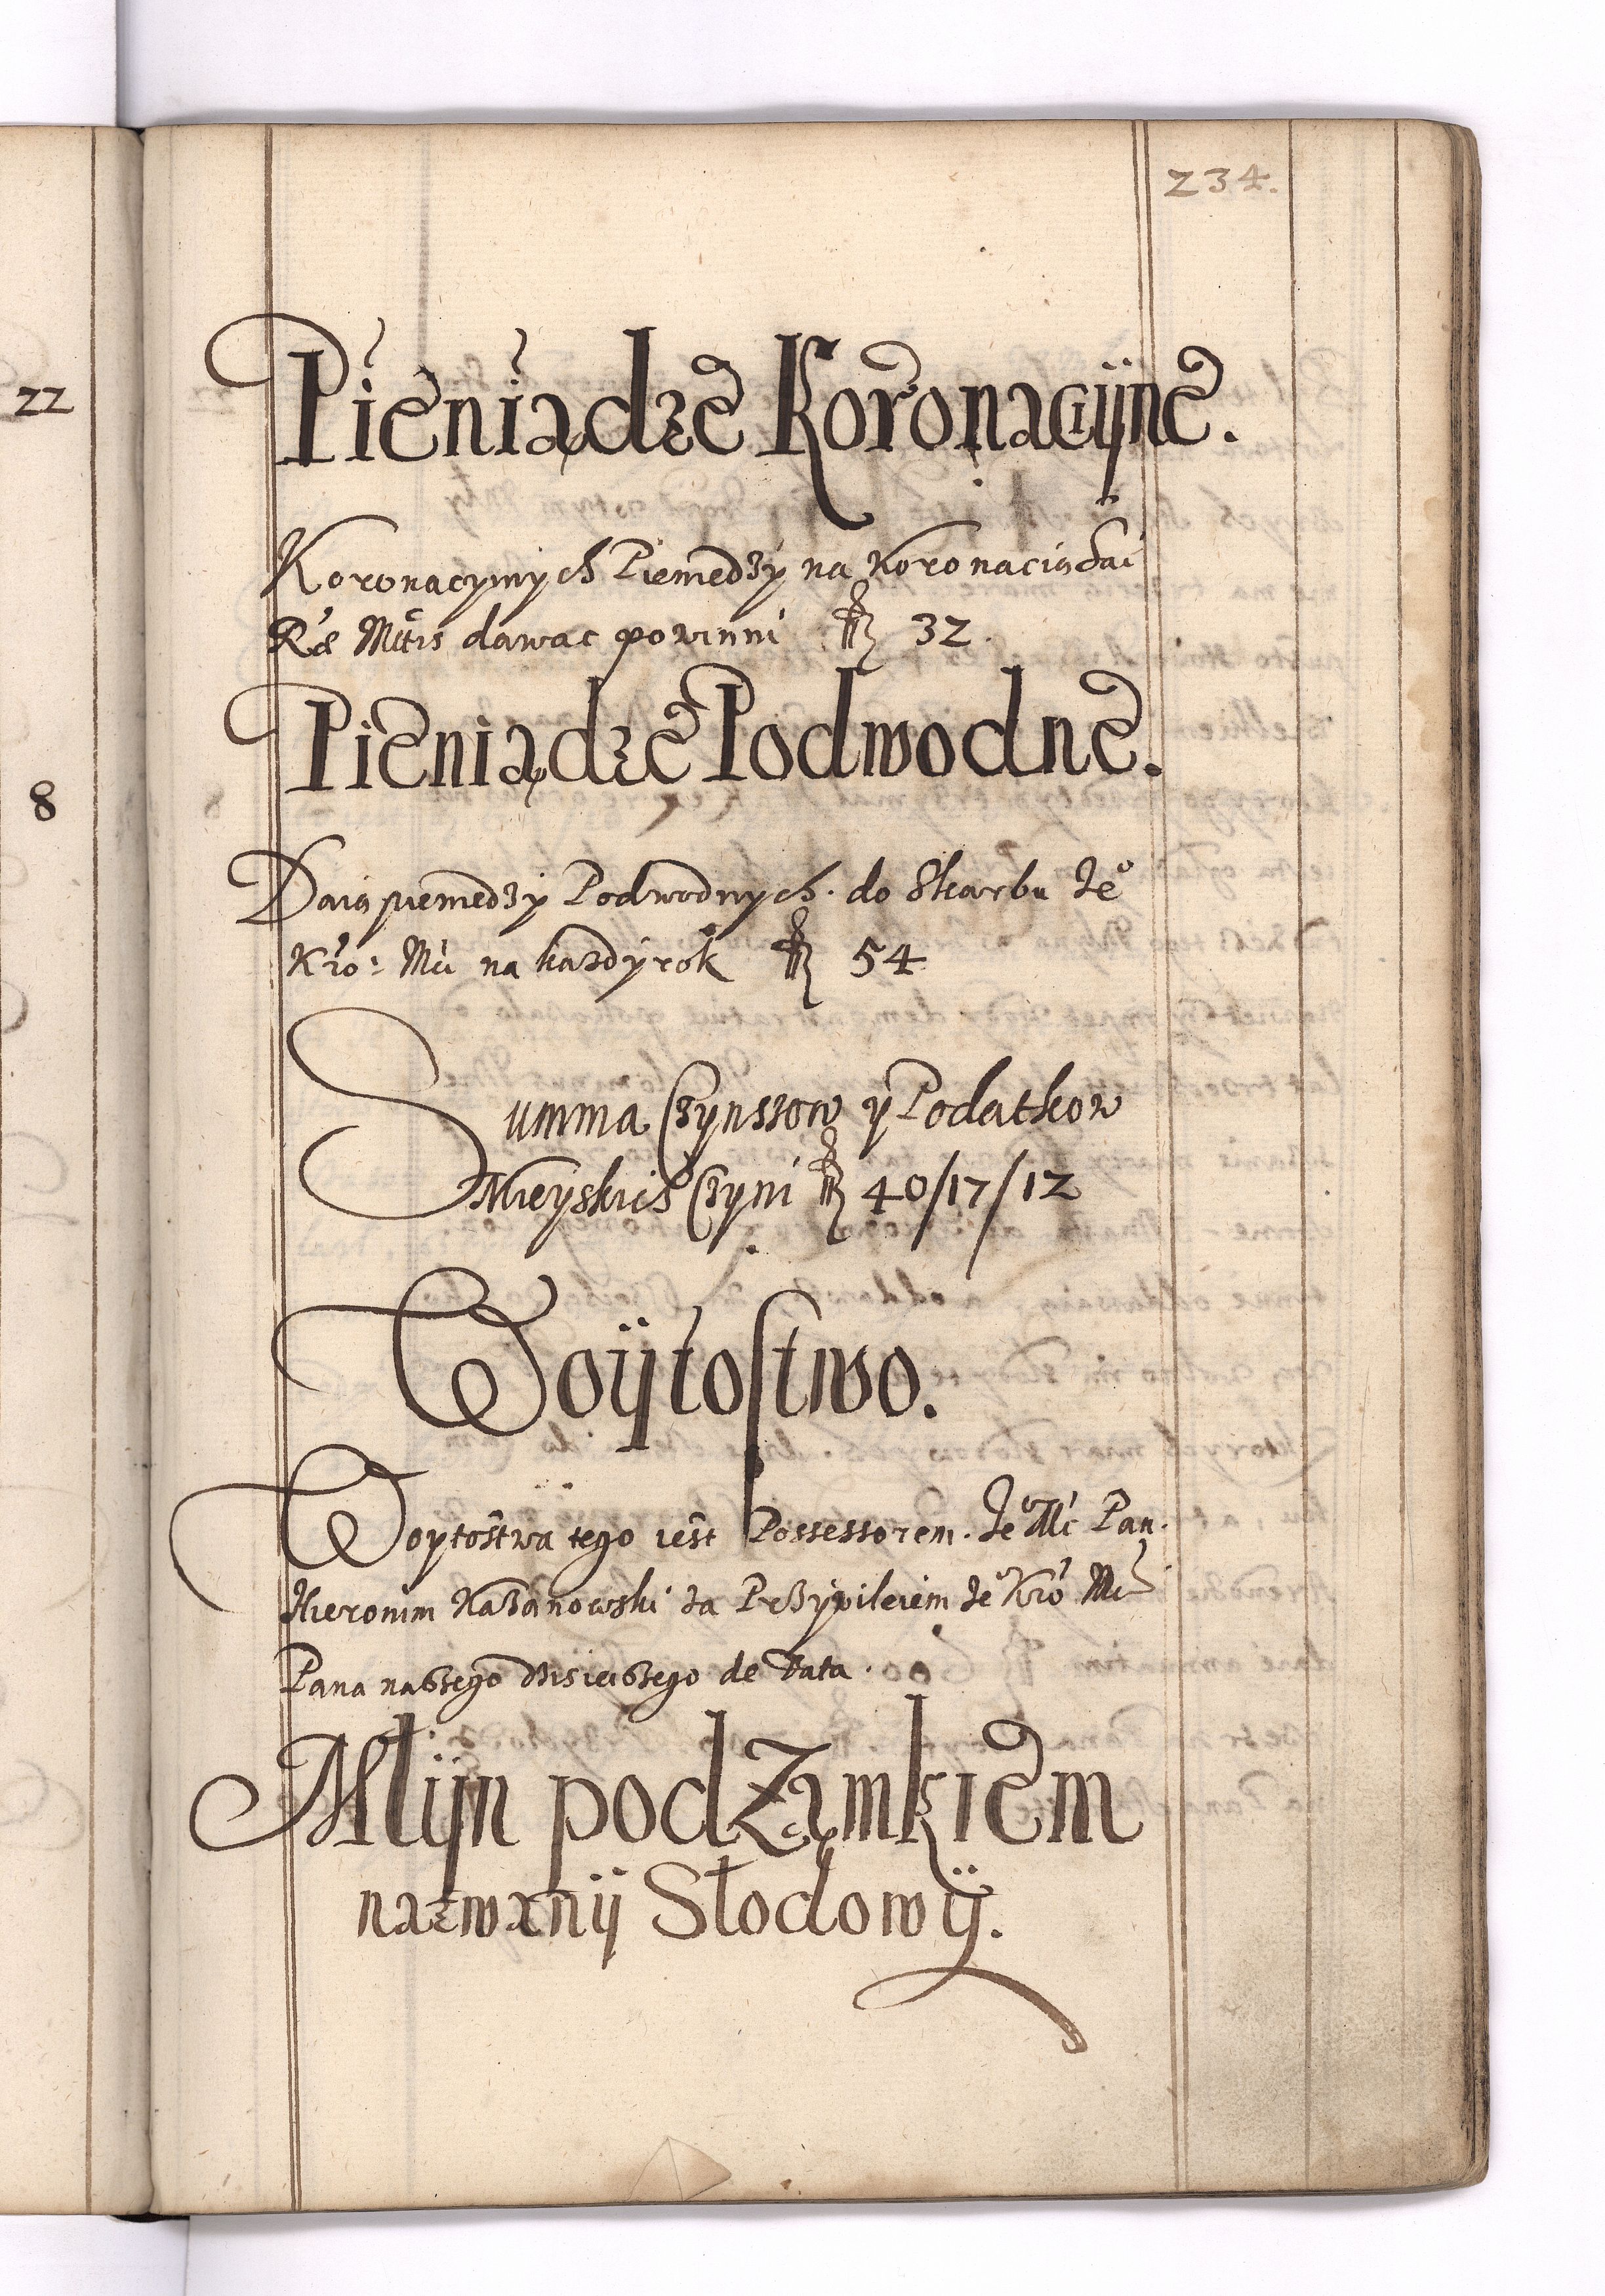 234.
22
8
Pieniądze Koronacijne.
Koronacynych Pieniedzy na Koronacią
Ræ Mttis dawac powinni 32.
Pieniądze Podwodne.
Daią pieniedzy Podwodnych do Skarbu Jeº
Kró: Mci na każdy rok 54
Summa Czynssow y Podatkow
Mieyskich Czyni 40/17/12
Woijtostwo.
Woytostwa tego iest Possessorem. Jeº Mć Pan.
Hieronim Kazanowski za Przywileiem Jeº Kró Mci
Pana naszego dzisieiszego de Data.
Mlijn pod Zamkiem
nazwanij Słodowij.